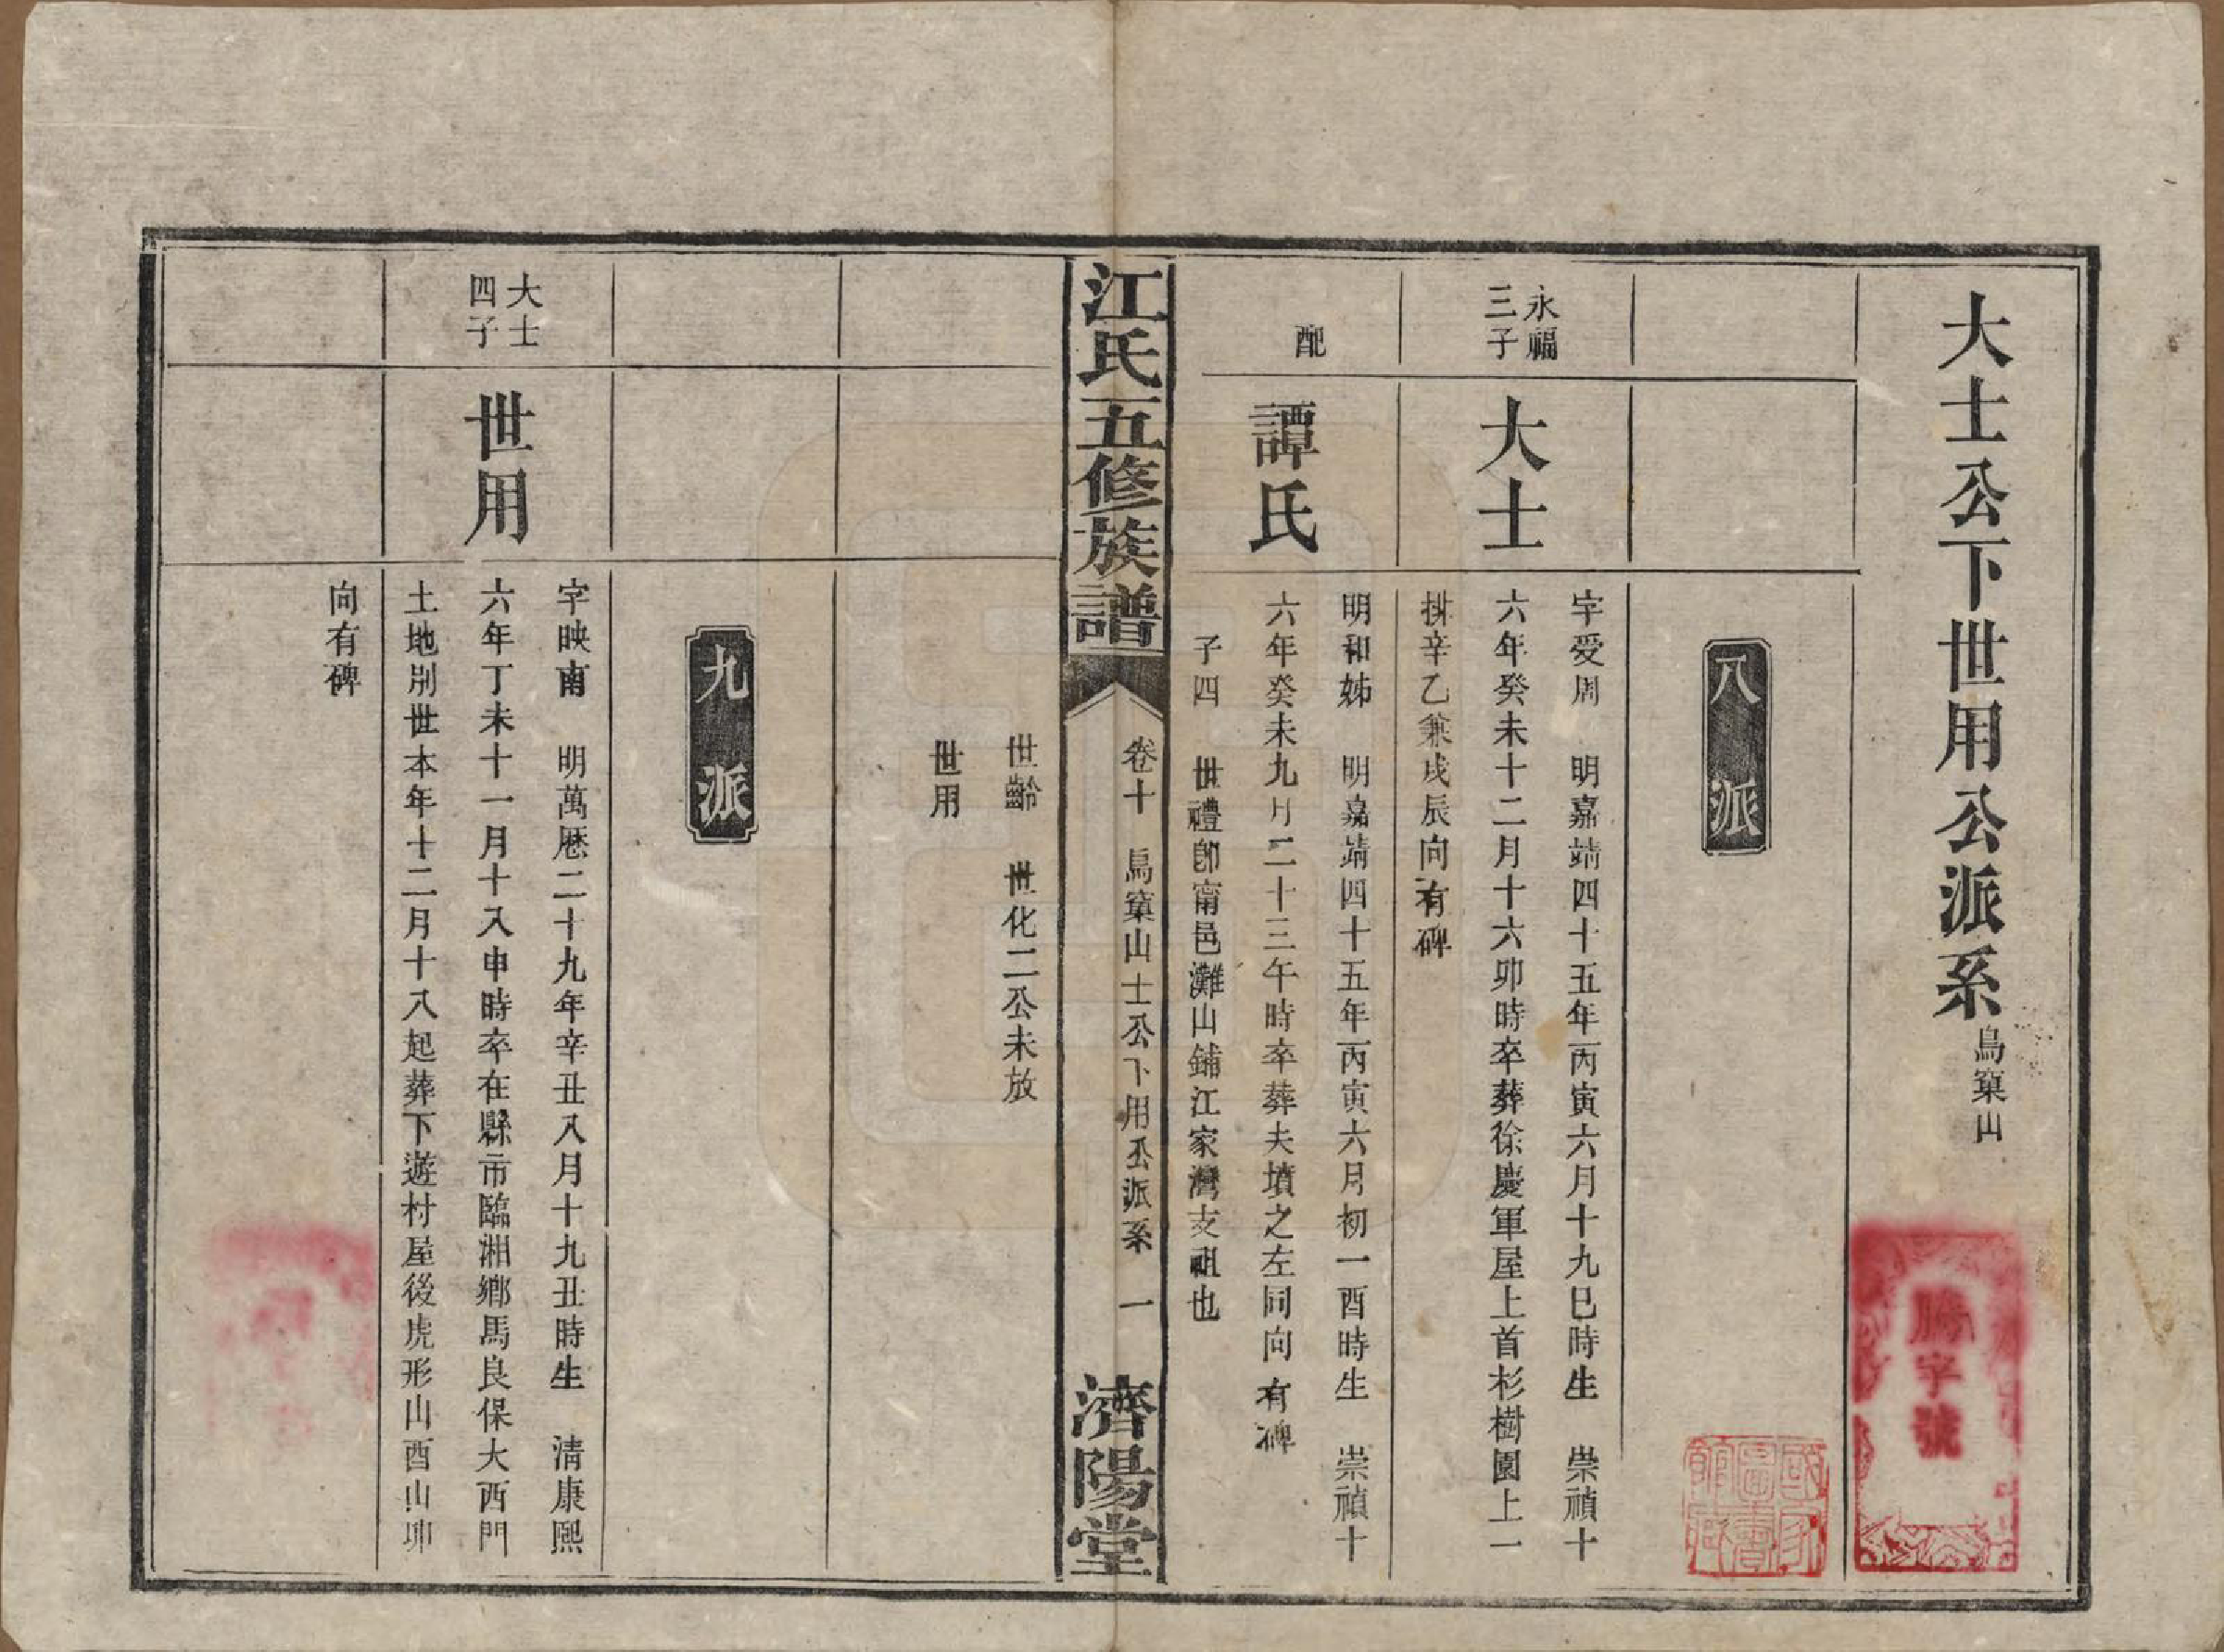 大士公下世用公派系 鳥窠山
八派
永福
三子
大士
字受周 明嘉靖四十五年丙寅六月十九巳時生 崇禎十
六年癸未十二月十六卯時卒葬徐慶軍屋上首杉樹園上一
排辛乙兼戌辰向有碑
配
譚氏
明和姊 明嘉靖四十五年丙寅六月初一酉時生 崇禎十
六年癸未九月二十三午時卒葬夫墳之左同向有碑
子四 世禮卽甯邑灘山鋪江家灣支祖也
江氏五修族譜
卷十 鳥窠山士公下用公派系 一
濟陽堂
世齡 世化二公未放
世用
九派
大士
四子
世用
字映南 明萬厯二十九年辛丑八月十九丑時生 清康熙
六年丁未十一月十八申時卒在縣市臨湘鄉馬良保大西門
土地別世本年十二月十八起葬下遊村屋後虎形山酉山卯
向有碑
勝字號
國家圖書館